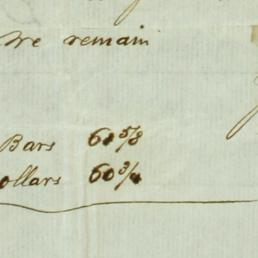 We remain
Bars 61 5/8
ollars 60 3/4